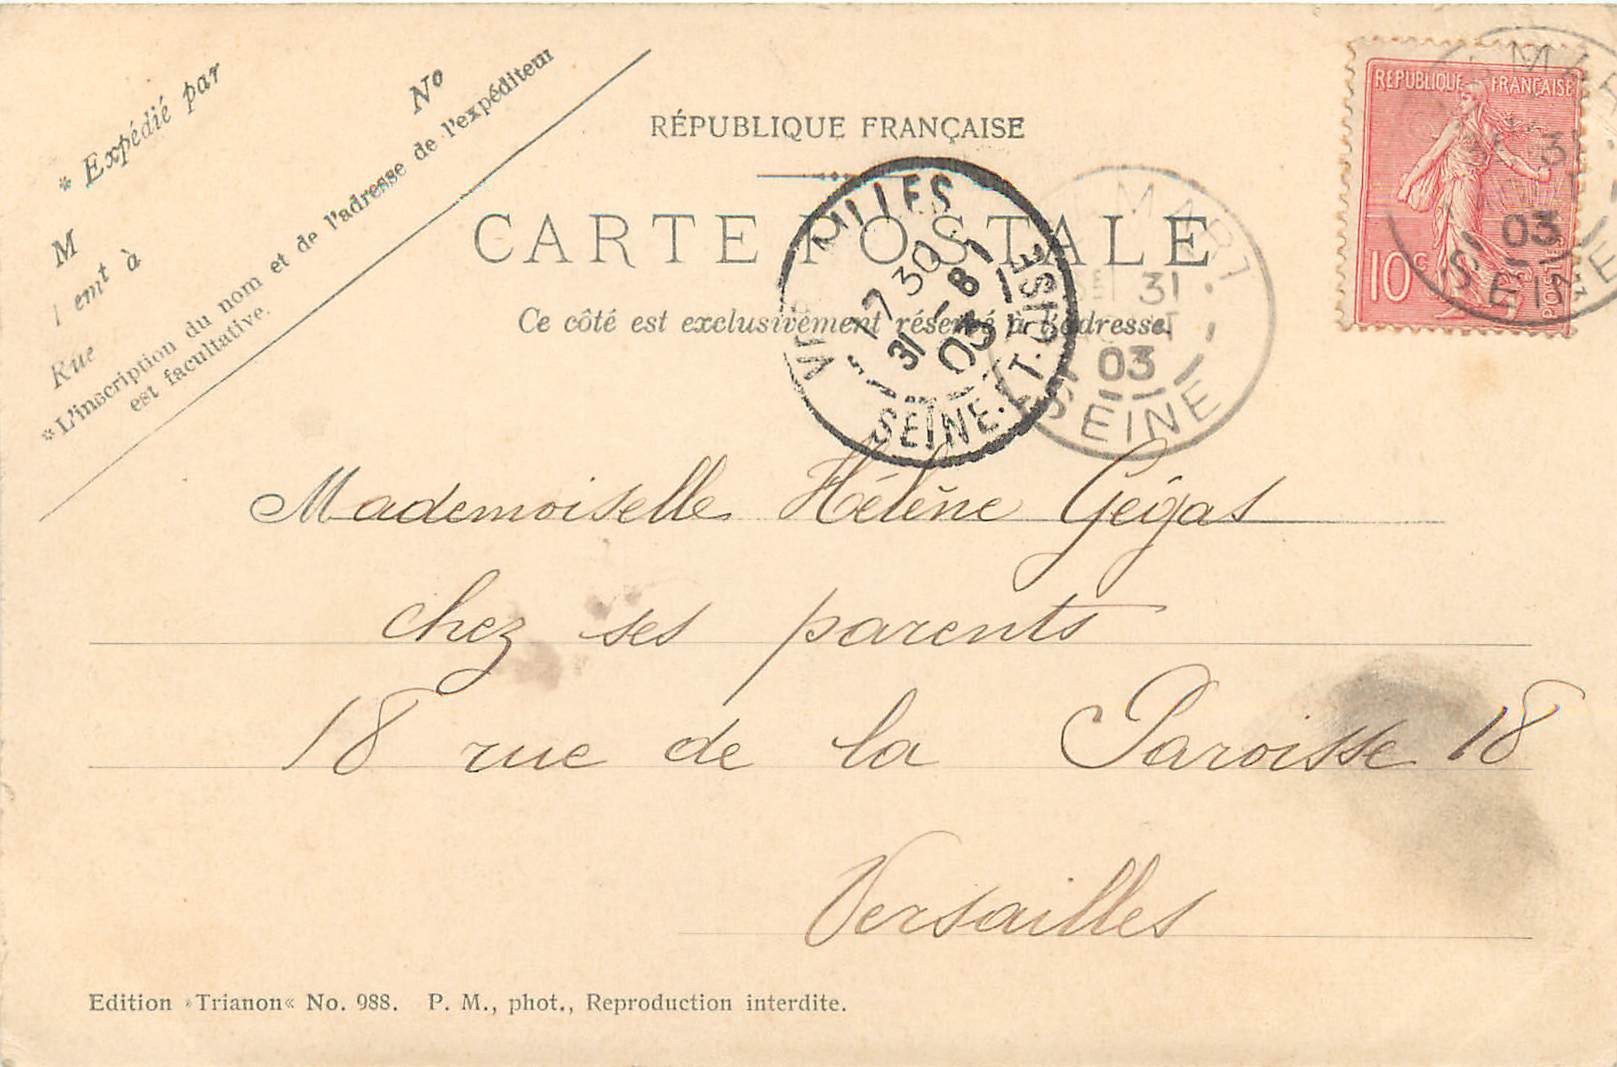 * Expédié par
M
Rue
Nº
*L'inscription du nom et de l'adresse de l'expéditeur
est facultative.
RÉPUBLIQUE FRANÇAISE
CARTE POSTALE
Ce côté est exclusivement réservé à l'adresse.
VERSAILLES
7 30
31 - 8
03
SEINE-ET-OISE
31
03
SEINE
REPUBLIQUE FRANÇAISE
10 c
POSTES
31
03
SEINE
Mademoiselle Hélène Gégas
chez ses parents
18 rue de la Paroisse 18
Versailles
Edition »Trianon« No. 988. P. M., phot., Reproduction interdite.